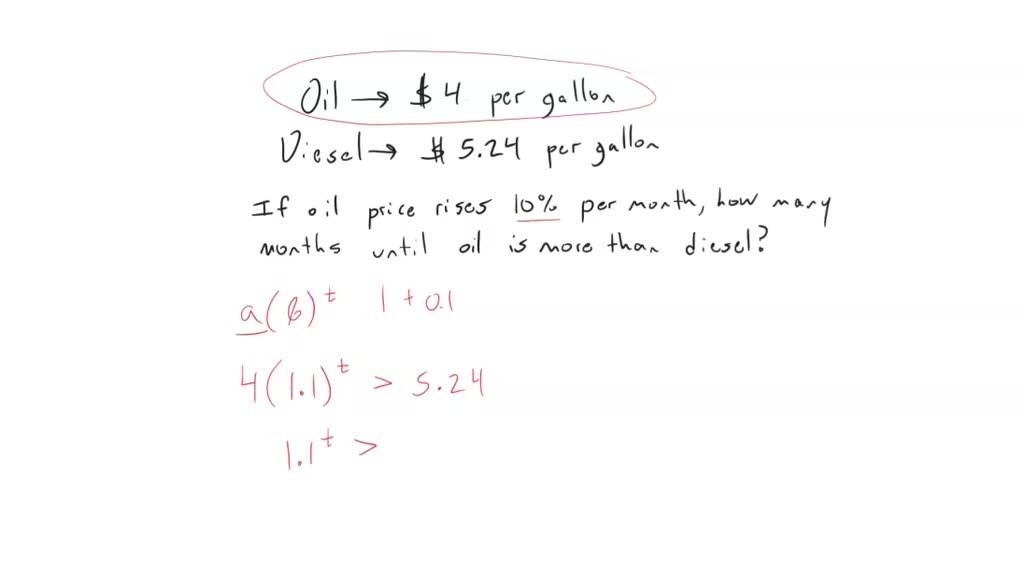 Oil → $ 4 per gallon
Diesel → $ 5.24 per gallon
If oil price rises 10% per month, how many
months until oil is more than diesel?
a(b)^t 1 + 0.1
4(1.1)^t > 5.24
1.1^t >